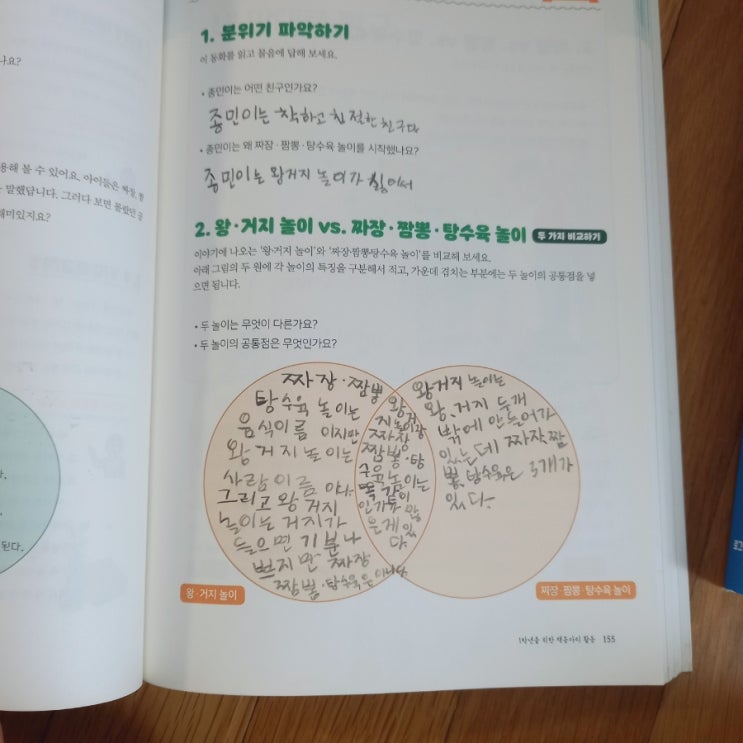 나요?
용해 볼 수 있어요. 아이들은 짜장, 짬
말했답니다. 그러다 보면 몰랐던 공
재미있지요?
된다.
1. 분위기 파악하기
이 동화를 읽고 물음에 답해 보세요.
• 종민이는 어떤 친구인가요?
종민이는 착하고 친절한 친구다
• 종민이는 왜 짜장·짬뽕·탕수육 놀이를 시작했나요?
종민이는 왕거지 놀이가 싫어서
2. 왕·거지 놀이 vs. 짜장·짬뽕·탕수육 놀이 두 가지 비교하기
이야기에 나오는 '왕·거지 놀이'와 '짜장·짬뽕·탕수육 놀이'를 비교해 보세요.
아래 그림의 두 원에 각 놀이의 특징을 구분해서 적고, 가운데 겹치는 부분에는 두 놀이의 공통점을 넣
으면 됩니다.
• 두 놀이는 무엇이 다른가요?
• 두 놀이의 공통점은 무엇인가요?
짜장·짬뽕
탕수육 놀이는
음식이름 이지만
왕거지놀이는
사람이름 이다.
그리고 왕거지
놀이는 거지가
들으면 기분나
쁘지만 짜장
짬뽕·탕수육은 아니다
왕거
지놀이랑
짜장
짬뽕·탕
수육놀이는
똑같이
인기가 많
은게 있
다.
왕거지 놀이는
왕,거지 두개
밖에 안들어가
있는데 짜장,짬
뽕,탕수육은 3개가
있다.
왕·거지 놀이
짜장·짬뽕·탕수육 놀이
1학년을 위한 책놀이 활동 155